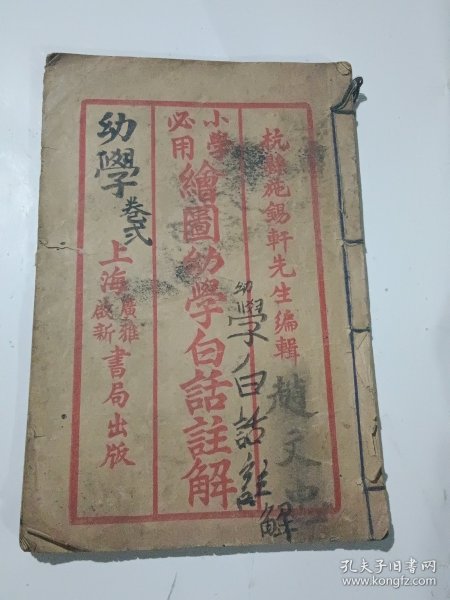 杭縣施錫軒先生編輯
小學必用
繪圖幼學白話註解
上海廣雅啟新書局出版
幼學卷弍
幼學白話註解
趙文
孔夫子旧书网
www.kongfz.com